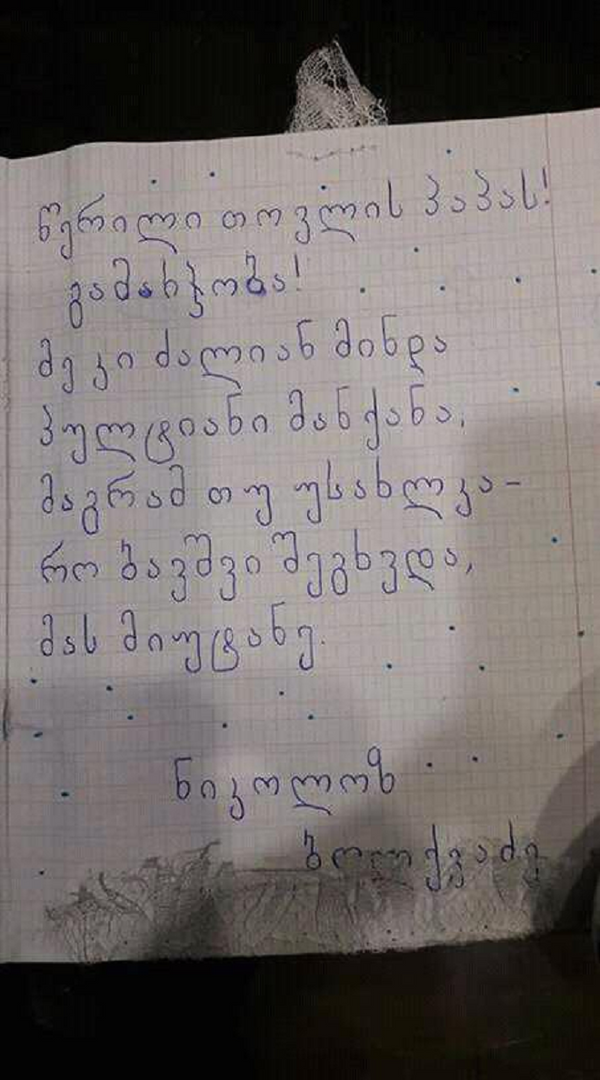 წერილი თოვლის პაპას!
გამარჯობა!
მე კი ძალიან მინდა
პულტიანი მანქანა,
მაგრამ თუ უსახლკა-
რო ბავშვი შეგხვდა,
მას მიუტანე.
ნიკოლოზ
ბოლქვაძე